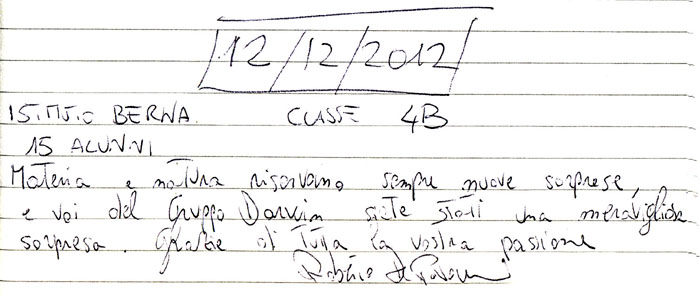 12/12/2012
ISTITUTO BERNA CLASSE 4B
15 ALUNNI
Materia e natura riservano sempre nuove sorprese,
e voi del Gruppo Darwin siete stati una meravigliosa
sorpresa. Grazie di tutta la vostra passione